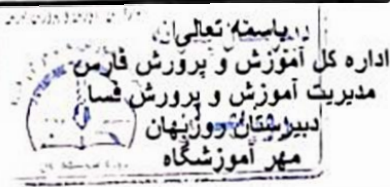 باسمه تعالی
اداره کل آموزش و پرورش فارس
مدیریت آموزش و پرورش فسا
دبیرستان روزبهان
مهر آموزشگاه